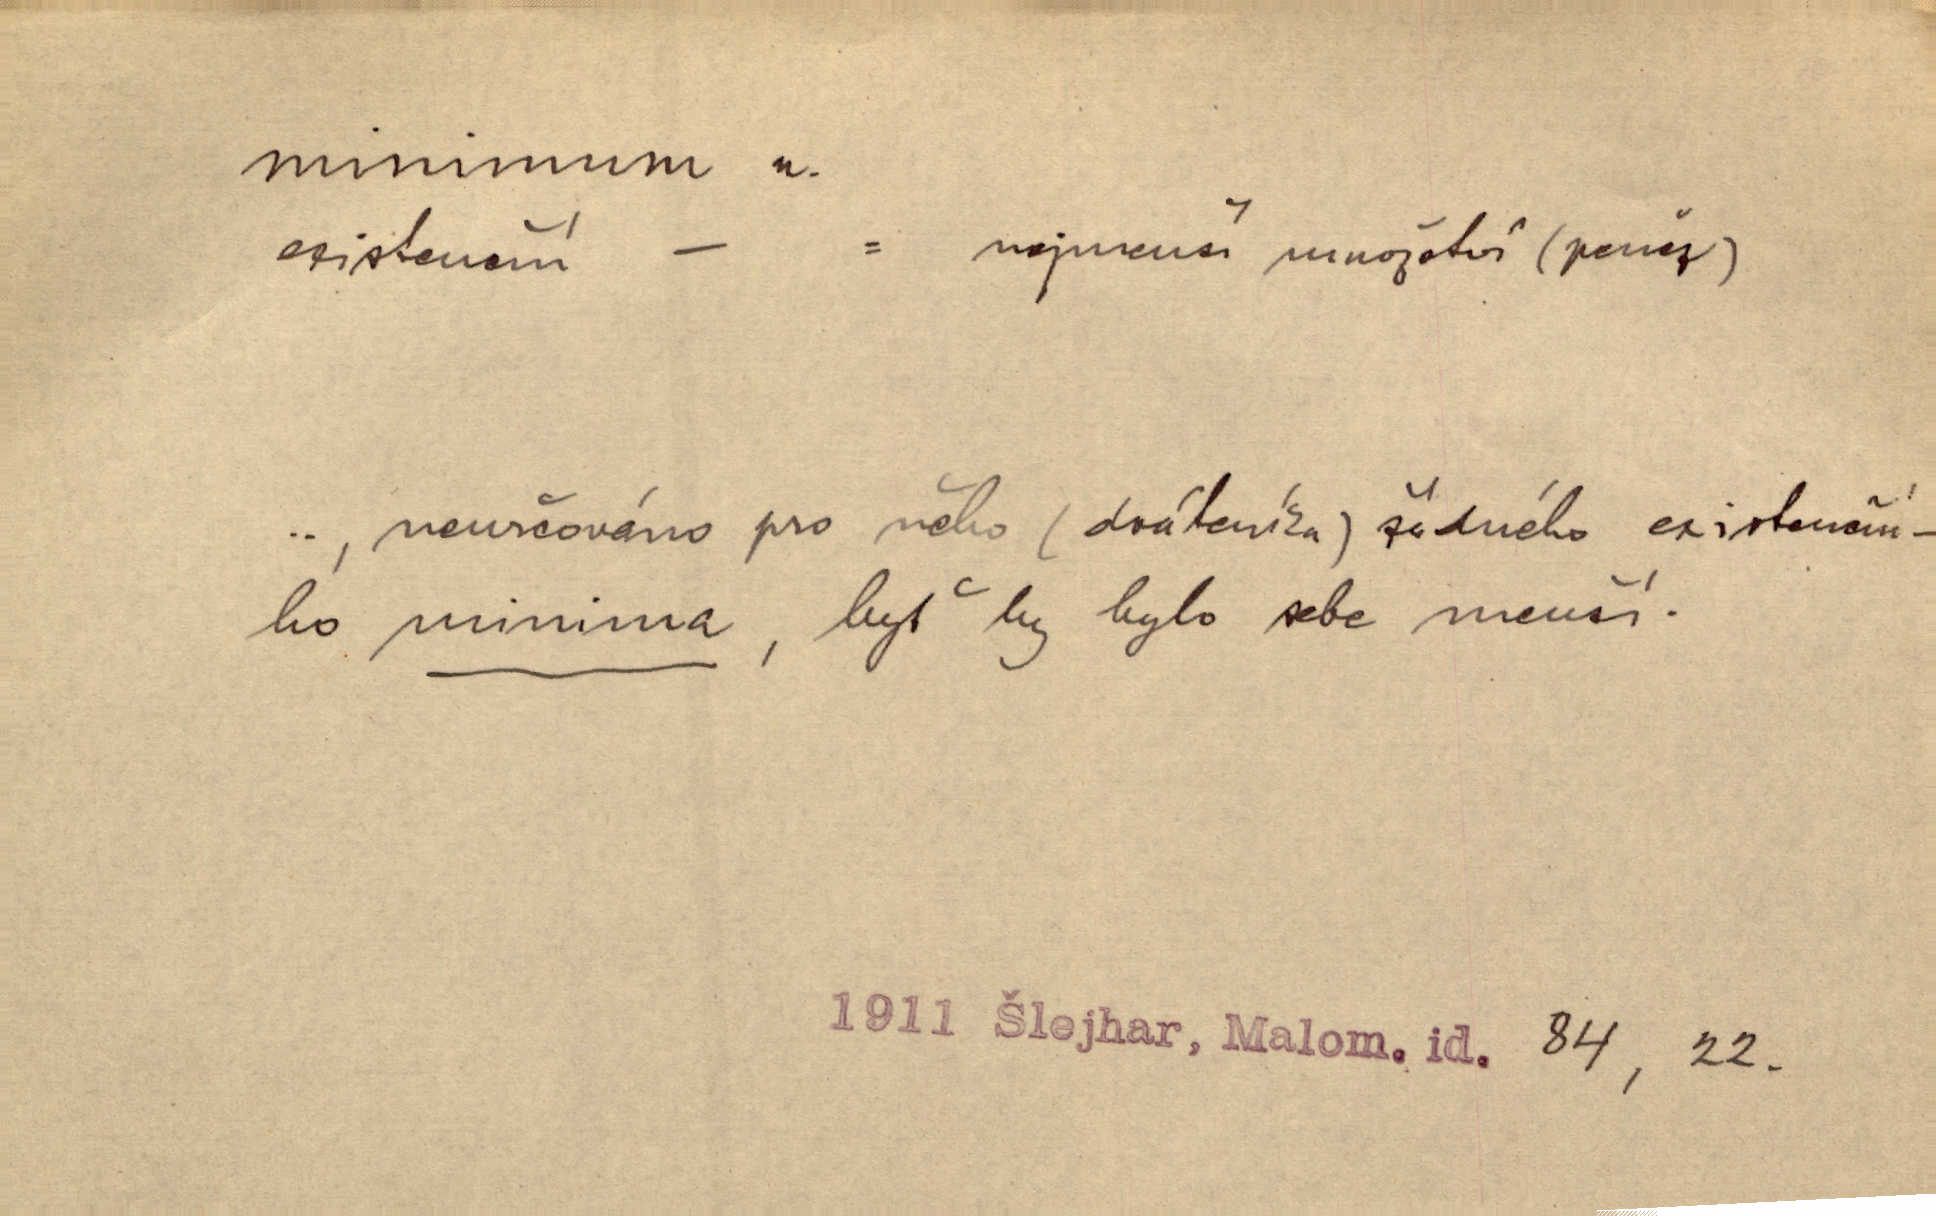 minimum n.
existenční — = nejmenší množství (peněz)
.., neurčováno pro něho (dráteníka) žádného existenční-
ho minima, byť by bylo sebe menší.
1911 Šlejhar, Malom. id. 84, 22.